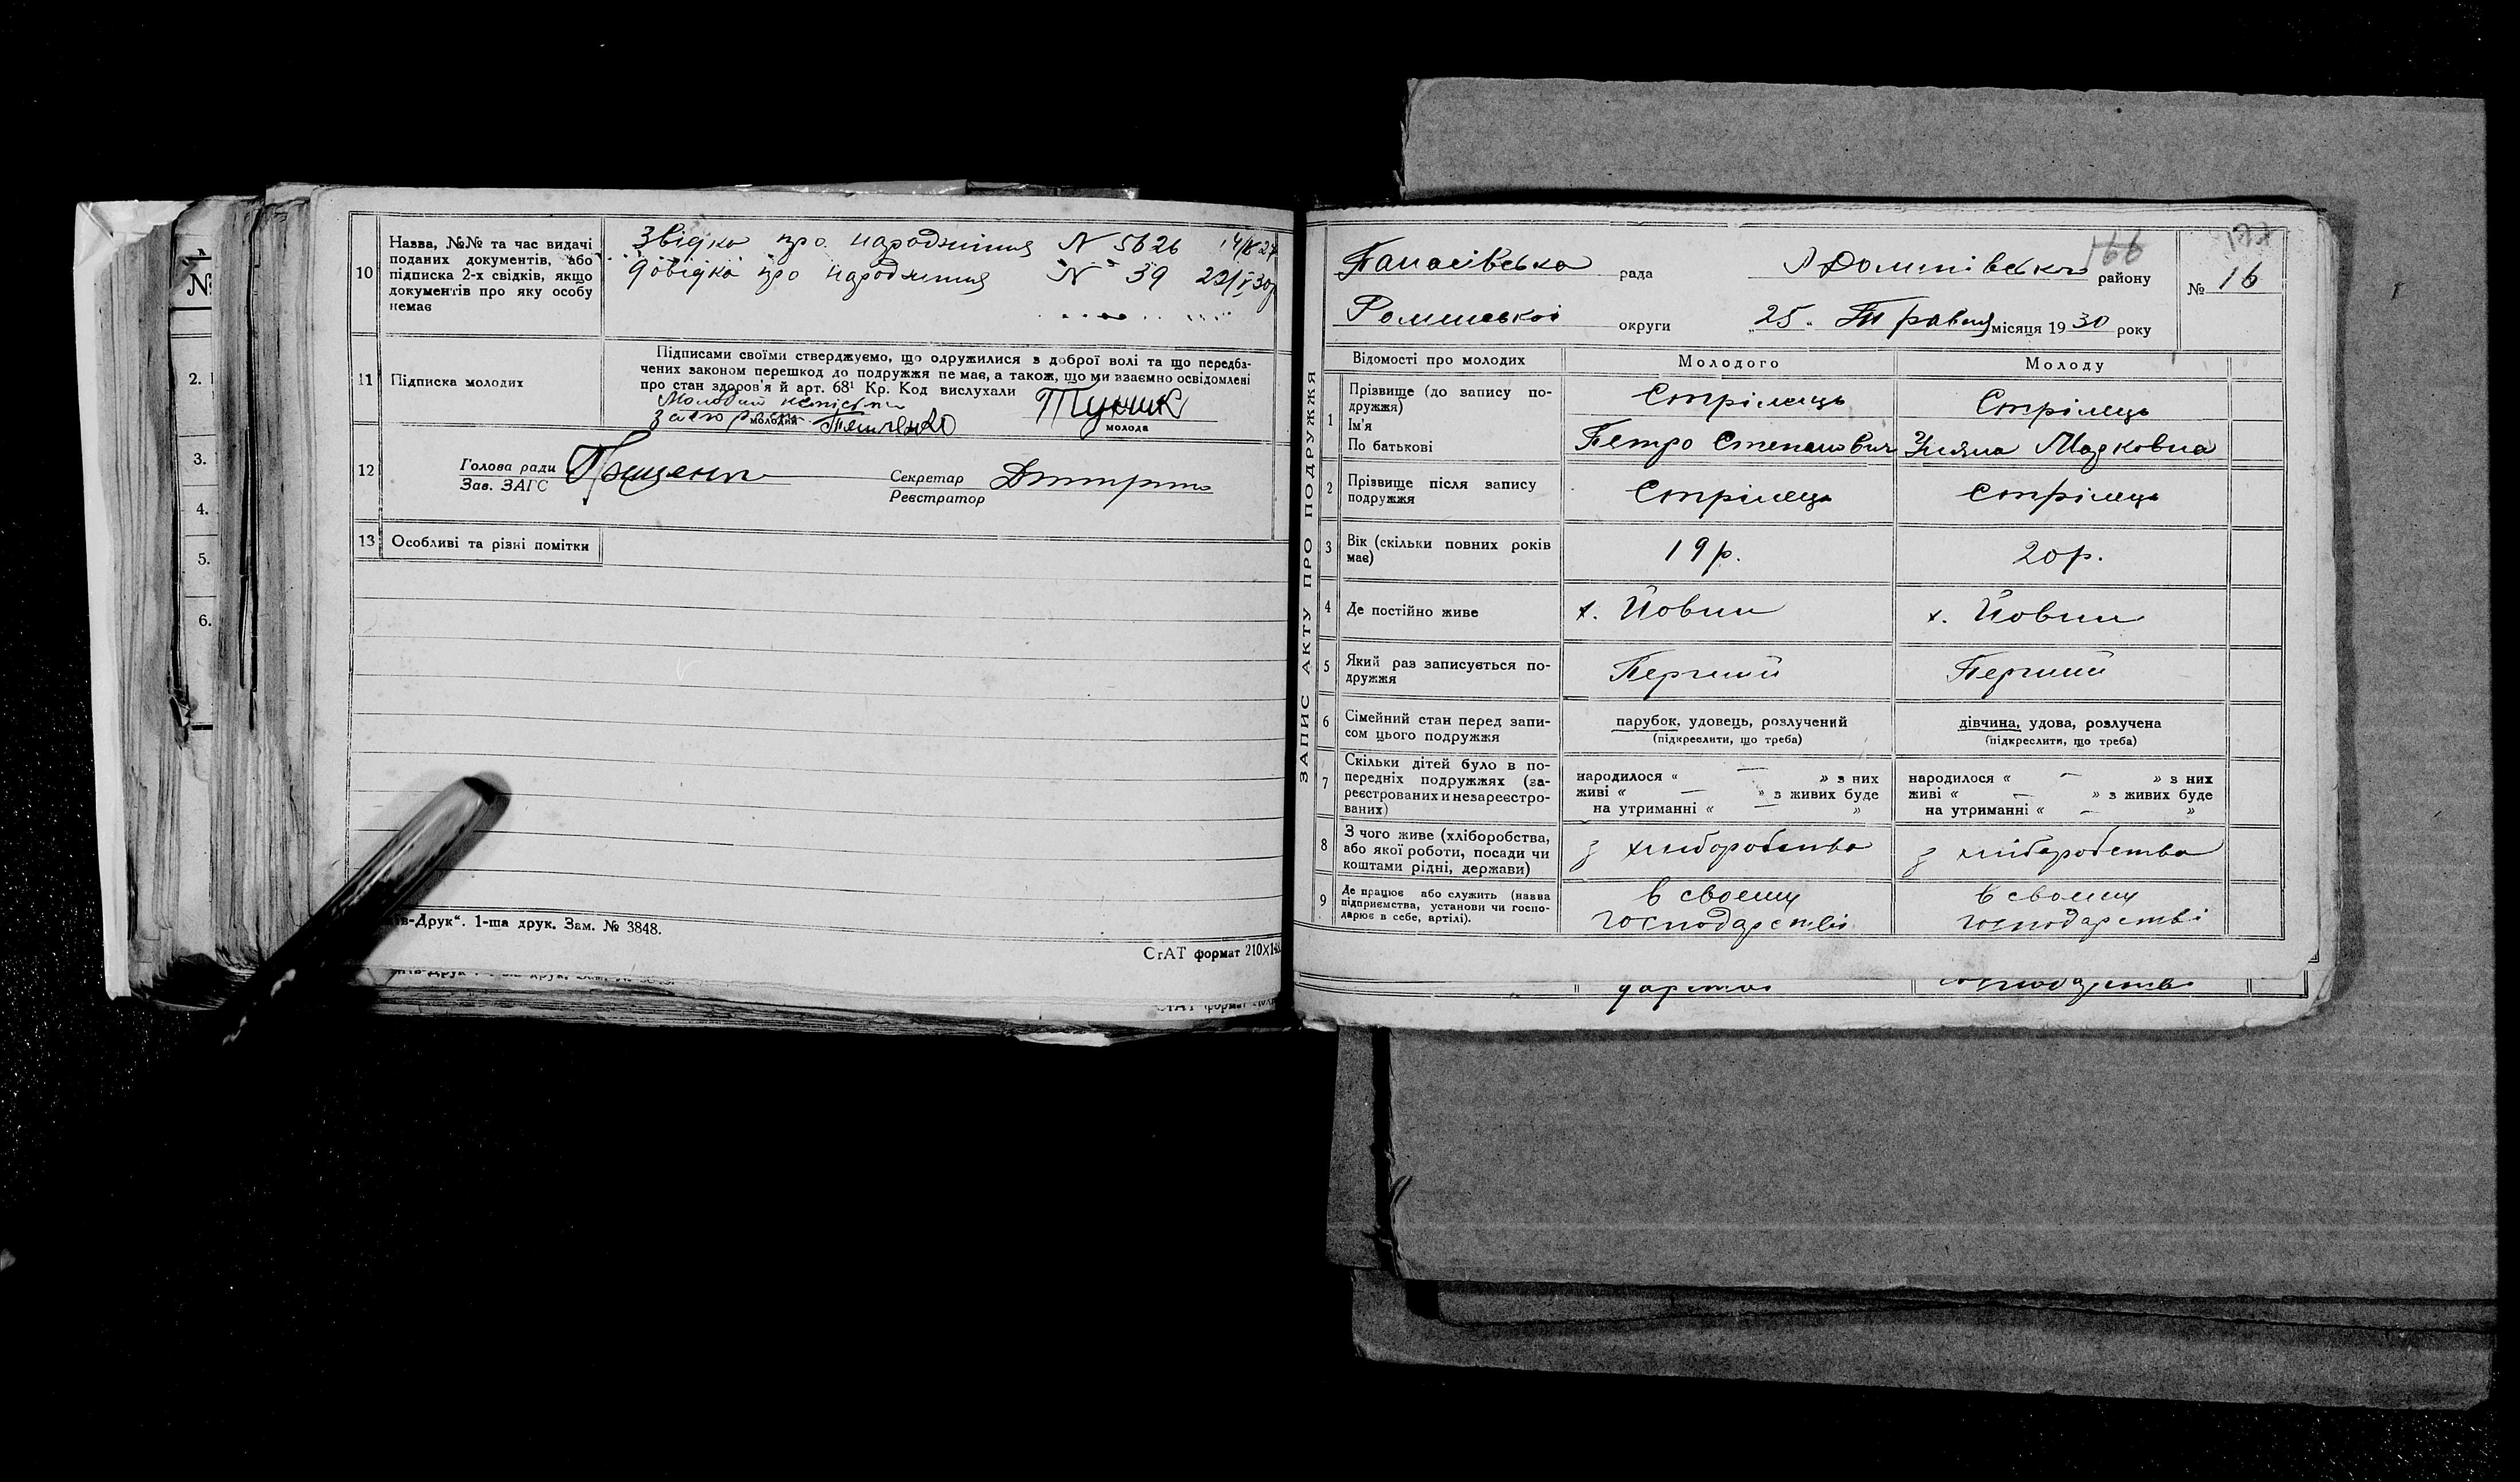 10 Назва, №№ та час видачі
поданих документів, або
підписка 2-х свідків, якщо
документів про яку особу
немає
Звідка про народження N 5626
довідка про народження N 39
11 Підписка молодих
Підписами своїми стверджуємо, що одружилися з доброї волі та що передба-
чених законом перешкод до подружжя не має, а також, що ми взаємно освідомлені
про стан здоров'я й арт. 68¹ Кр. Код вислухали
Молодий
за його
молодий
молода
12 Голова ради
Зав. ЗАГС
Секретар
Реєстратор
13 Особливі та різні помітки
в-Друк“. 1-ша друк. Зам. № 3848.
СгАТ формат 210X14
№
2.
3.
4.
5.
6.
166
Панасівська рада району
№ 16
Роменської округи „25„ Травня місяця 1930 року
ЗАПИС АКТУ ПРО ПОДРУЖЖЯ
Відомості про молодих Молодого Молоду
1 Прізвище (до запису по-
дружжя)
Ім'я
По батькові
Стрілець
Петро Степанович
Стрілець
Уляна Марковна
2 Прізвище після запису
подружжя
Стрілець Стрілець
3 Вік (скільки повних років
має)
19 р. 20 р.
4 Де постійно живе
х. Йовин х. Йовин
5 Який раз записується по-
дружжя
Перший Перший
6 Сімейний стан перед запи-
сом цього подружжя
парубок, удовець, розлучений
(підкреслити, що треба)
дівчина, удова, розлучена
(підкреслити, що треба)
7 Скільки дітей було в по-
передніх подружжях (за-
реєстрованих и незареєстро-
ваних)
народилося “ — ” з них
живі “ — ” з живих буде
на утриманні “ — ”
народилося “ — ” з них
живі “ — ” з живих буде
на утриманні “ — ”
8 З чого живе (хліборобства,
або якої роботи, посади чи
коштами рідні, держави)
з хліборобства з хліборобства
9 Де працює або служить (назва
підприємства, установи чи госпо-
дарює в себе, артілі).
в своєму
господарстві
в своєму
господарстві